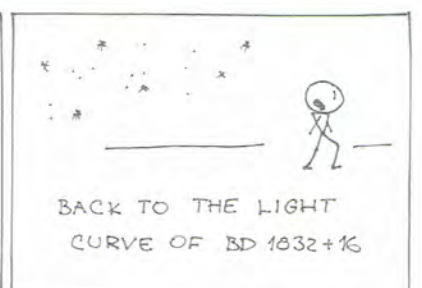 BACK TO THE LIGHT
CURVE OF BD 1832+16